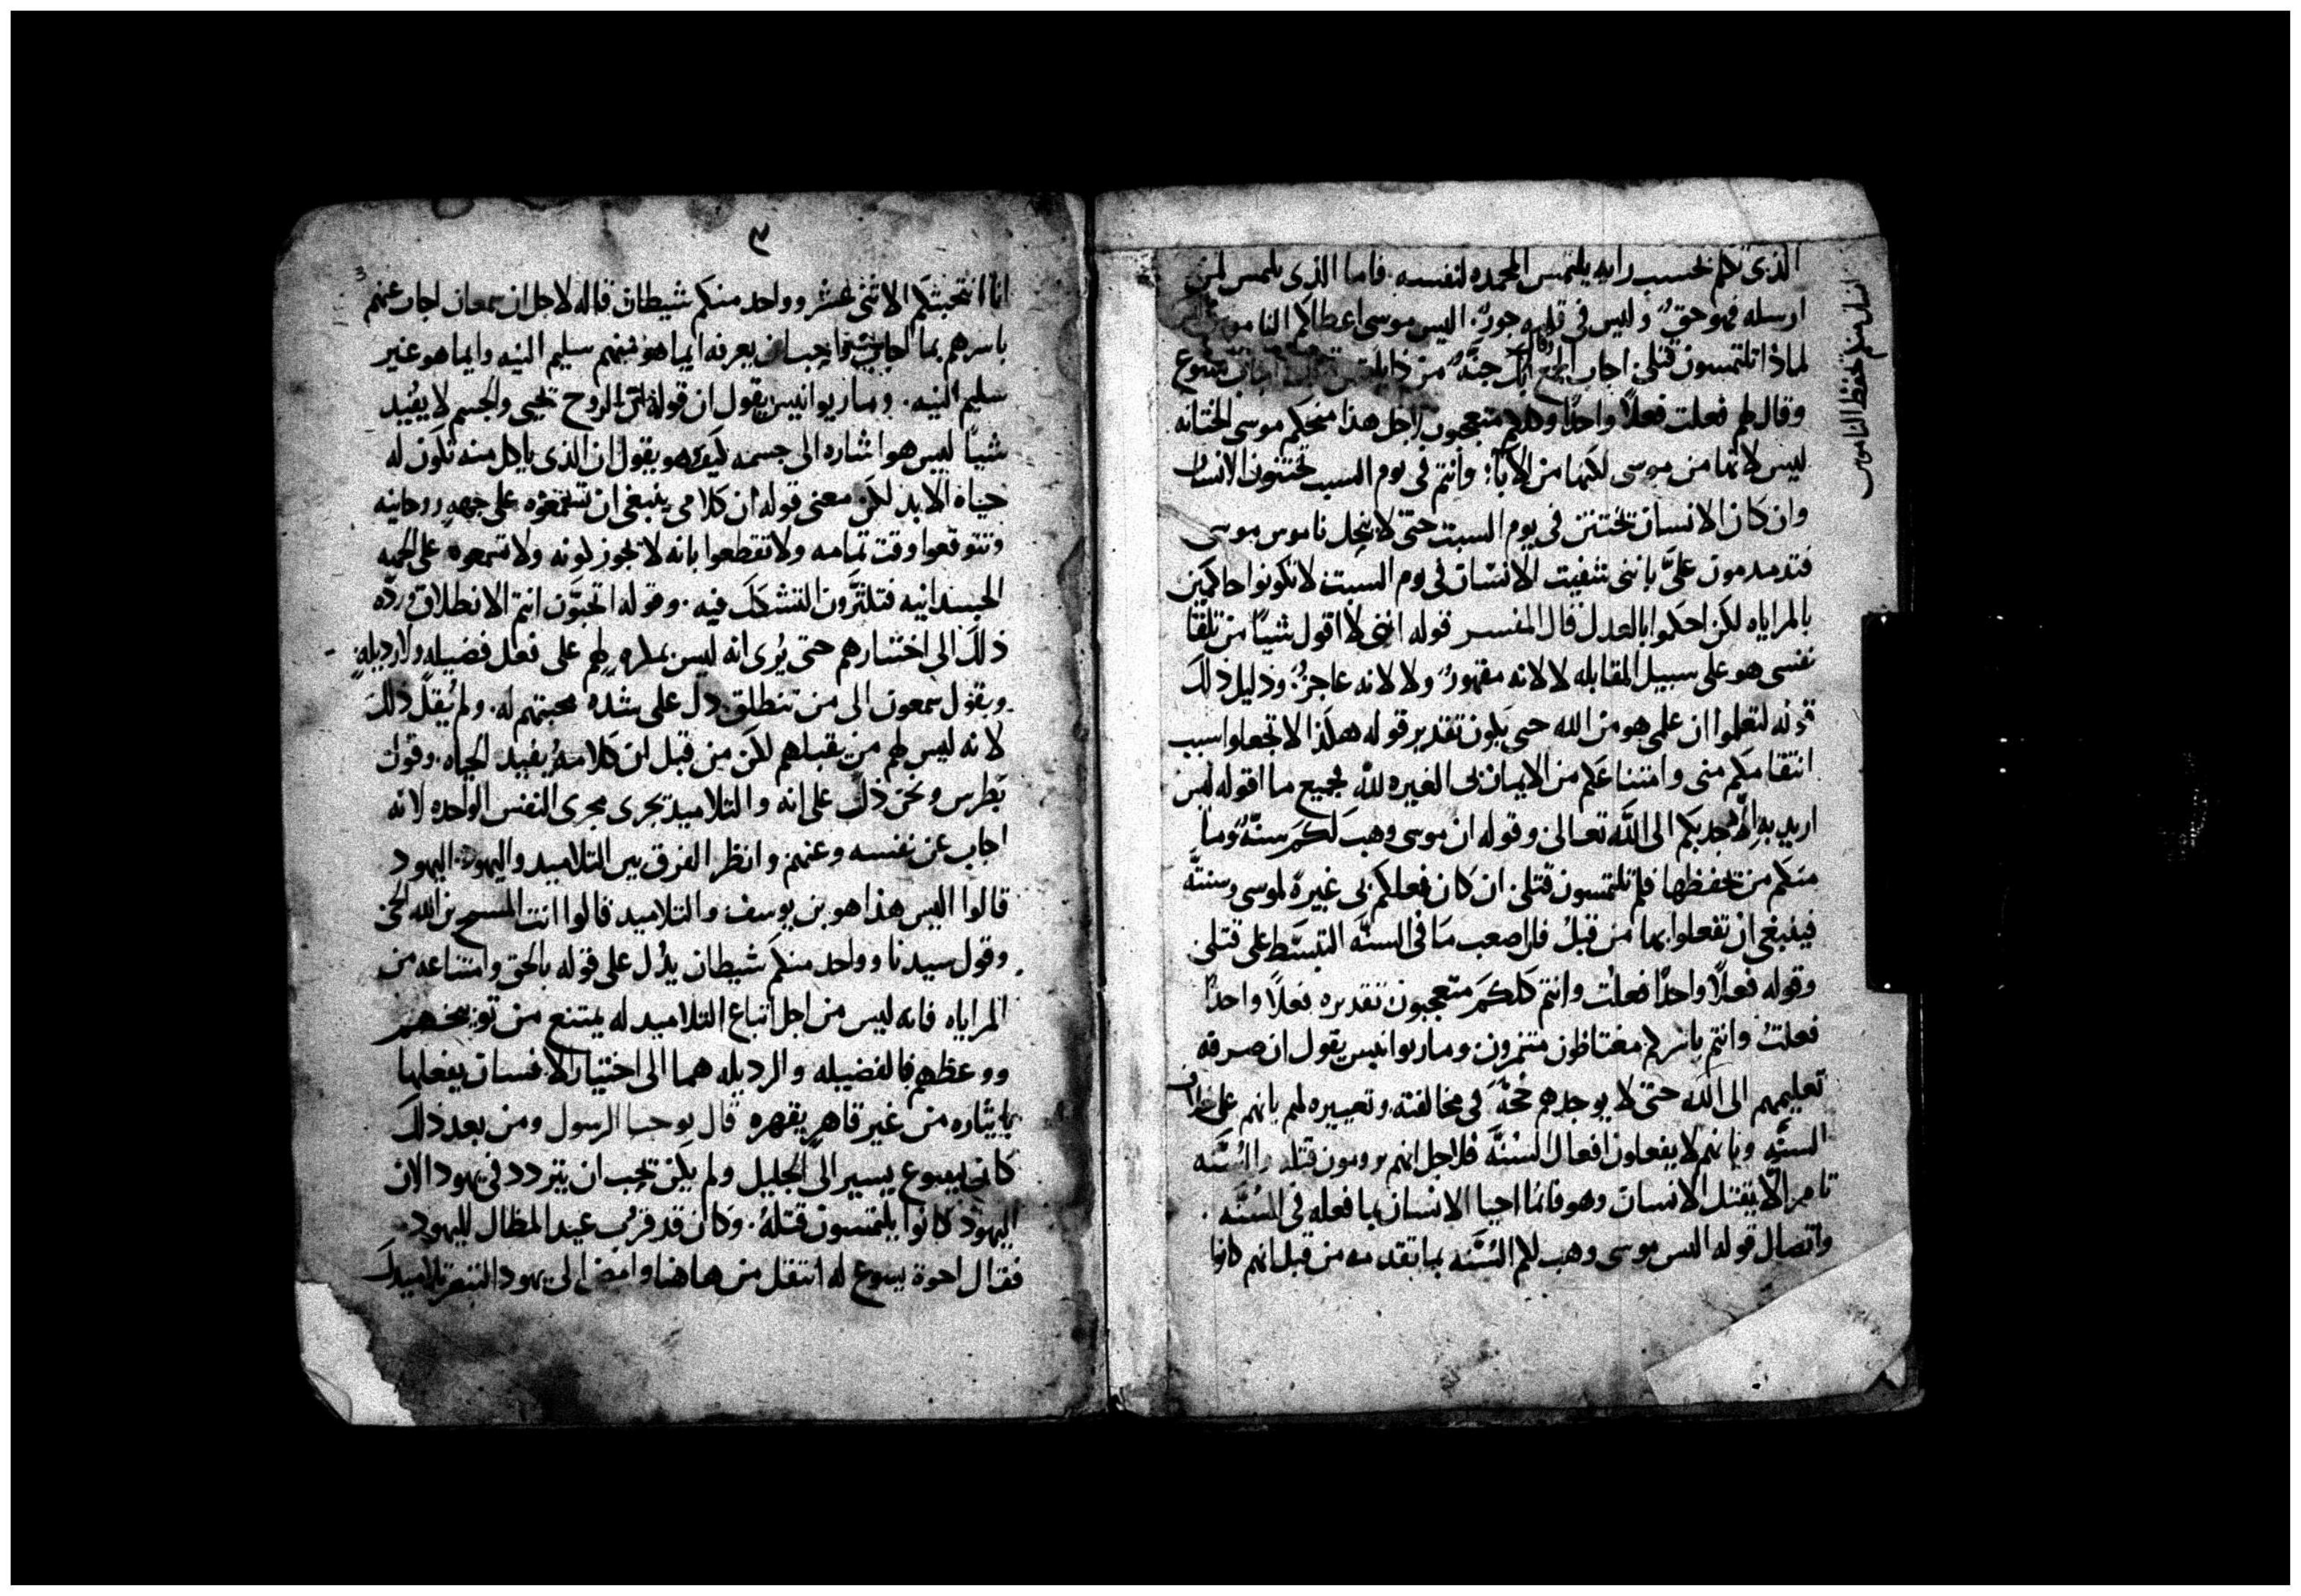 الذى تكلم بحسب رايه يلتمس المحمده لنفسه. فاما الذى يلتمس لمن
ارسله فهو حق وليس فى قلبه جور. اليس موسى اعطاكم الناموس
لماذا تلتمسون قتلى اجاب الجمع بك جنة من ذا يلتمس اجاب يسوع
وقال لهم فعلت فعلاً واحداً وكلكم متعجبون لاجل هذا منحكم موسى الختانه
ليس لانها من موسى لكنها من الابا؛ وانتم فى يوم السبت تختنون الانسان
وان كان الانسان يختتن فى يوم السبت حتى لا ينحل ناموس موسى
فتدمدمون علىّ باننى شفيت الانسان فى يوم السبت لا تكونوا حاكمين
بالمراياه لكن احكموا بالعدل قال المفسر قوله اننى لا اقول شياً من تلقا
نفسى هو على سبيل المقابله لا لانه مقهورٌ ولا لانه عاجزٌ؛ ودليل ذلك
قوله لتعلموا ان علمى هو من الله حتى يكون تقدير قوله هكذا لا تجعلوا سبب
انتقامكم منى وامتناعكم من الايمان بى الغيره لله فجميع ما اقوله ليس
اريد به الا جذبكم الى الله تعالى وقوله ان موسى وهب لكم سنّةً وما
منكم من يحفظها فلم تلتمسون قتلى ان كان فعلكم بى غيرةً لموسى وسنته
فينبغى ان تفعلوا بها من قبل فان اصعب ما فى السنّه التبسّط على قتلى
وقوله فعلاً واحداً فعلت وانتم كلكم متعجبون تقديره فعلاً واحداً
فعلتُ وانتم باسركم مغتاظون متنمرون وماريوانيس يقول ان صرفه
تعليمهم الى الله حتى لا يوجدهم حجّةً فى مخالفته وتعييره لهم بانهم على خلاف
السنّه وبانهم لا يفعلون افعال السنّه فلاجل انهم يرومون قتله والسنّه
تامر الّا يقتل الانسان وهو فانما احيا الانسان بما فعله فى السنّه.
واتصال قوله اليس موسى وهب لكم السنّه بما تقدمه من قبل انهم كانوا
انسان منكم يحفظ الناموس
٣
3
انا انتخبتكم الاثنى عشر وواحد منكم شيطان قاله لاجل ان سمعان اجاب عنهم
باسرهم بما اجاب فاحب ان يعرفه ايما هو منهم سليم النيه وايما هو غير
سليم النيه. وماريوانيس يقول ان قوله ان الروح تحيى والجسم لا يفيد
شياً ليس هو اشاره الى جسمه كيف وهو يقول ان الذى ياكل منه تكون له
حياه الابد لكن معنى قوله ان كلامى ينبغى ان تسمعوه على جهه روحانيه
وتتوقعوا وقت تمامه ولا تقطعوا بانه لا يجوز كونه ولا تسمعوه على الجهه
الجسدانيه فتلتزمون التشكك فيه. وقوله اتحبّون انتم الانطلاق وردّه
ذلك الى اختيارهم حتى يُرى انه ليس بمكره لهم على فعل فضيله ولا رذيله
وبقول سمعون الى من ننطلق دل على شدة محبتهم له. ولم يُقل ذلك
لانه ليس لهم من يقبلهم لكن من قبل ان كلامه يفيد الحياه. وقول
بطرس ونحن ذلك على انه والتلاميذ تجرى مجرى النفس الواحده لانه
اجاب عن نفسه وعنهم وانظر الفرق بين التلاميذ واليهود. اليهود
قالوا اليس هذا هو بن يوسف والتلاميذ قالوا انت المسيح بن الله الحى
وقول سيدنا وواحد منكم شيطان يدُل على قوله بالحق وامتناعه من
المراياه فانه ليس من اجل اتباع التلاميذ له يمتنع من توبيخهم
ووعظهم فالفضيله والرذيله هما الى اختيار الانسان يفعلها
بايثاره من غير قاهرٍ يقهره قال يوحنا الرسول ومن بعد ذلك
كان يسوع يسير الى الجليل ولم يكن يحب ان يتردد فى يهودا لان
اليهود كانوا يلتمسون قتله. وكان قد قرب عيد المظال لليهود
فقال اخوة يسوع له انتقل من هاهنا وامض الى يهودا لينظر تلاميذك